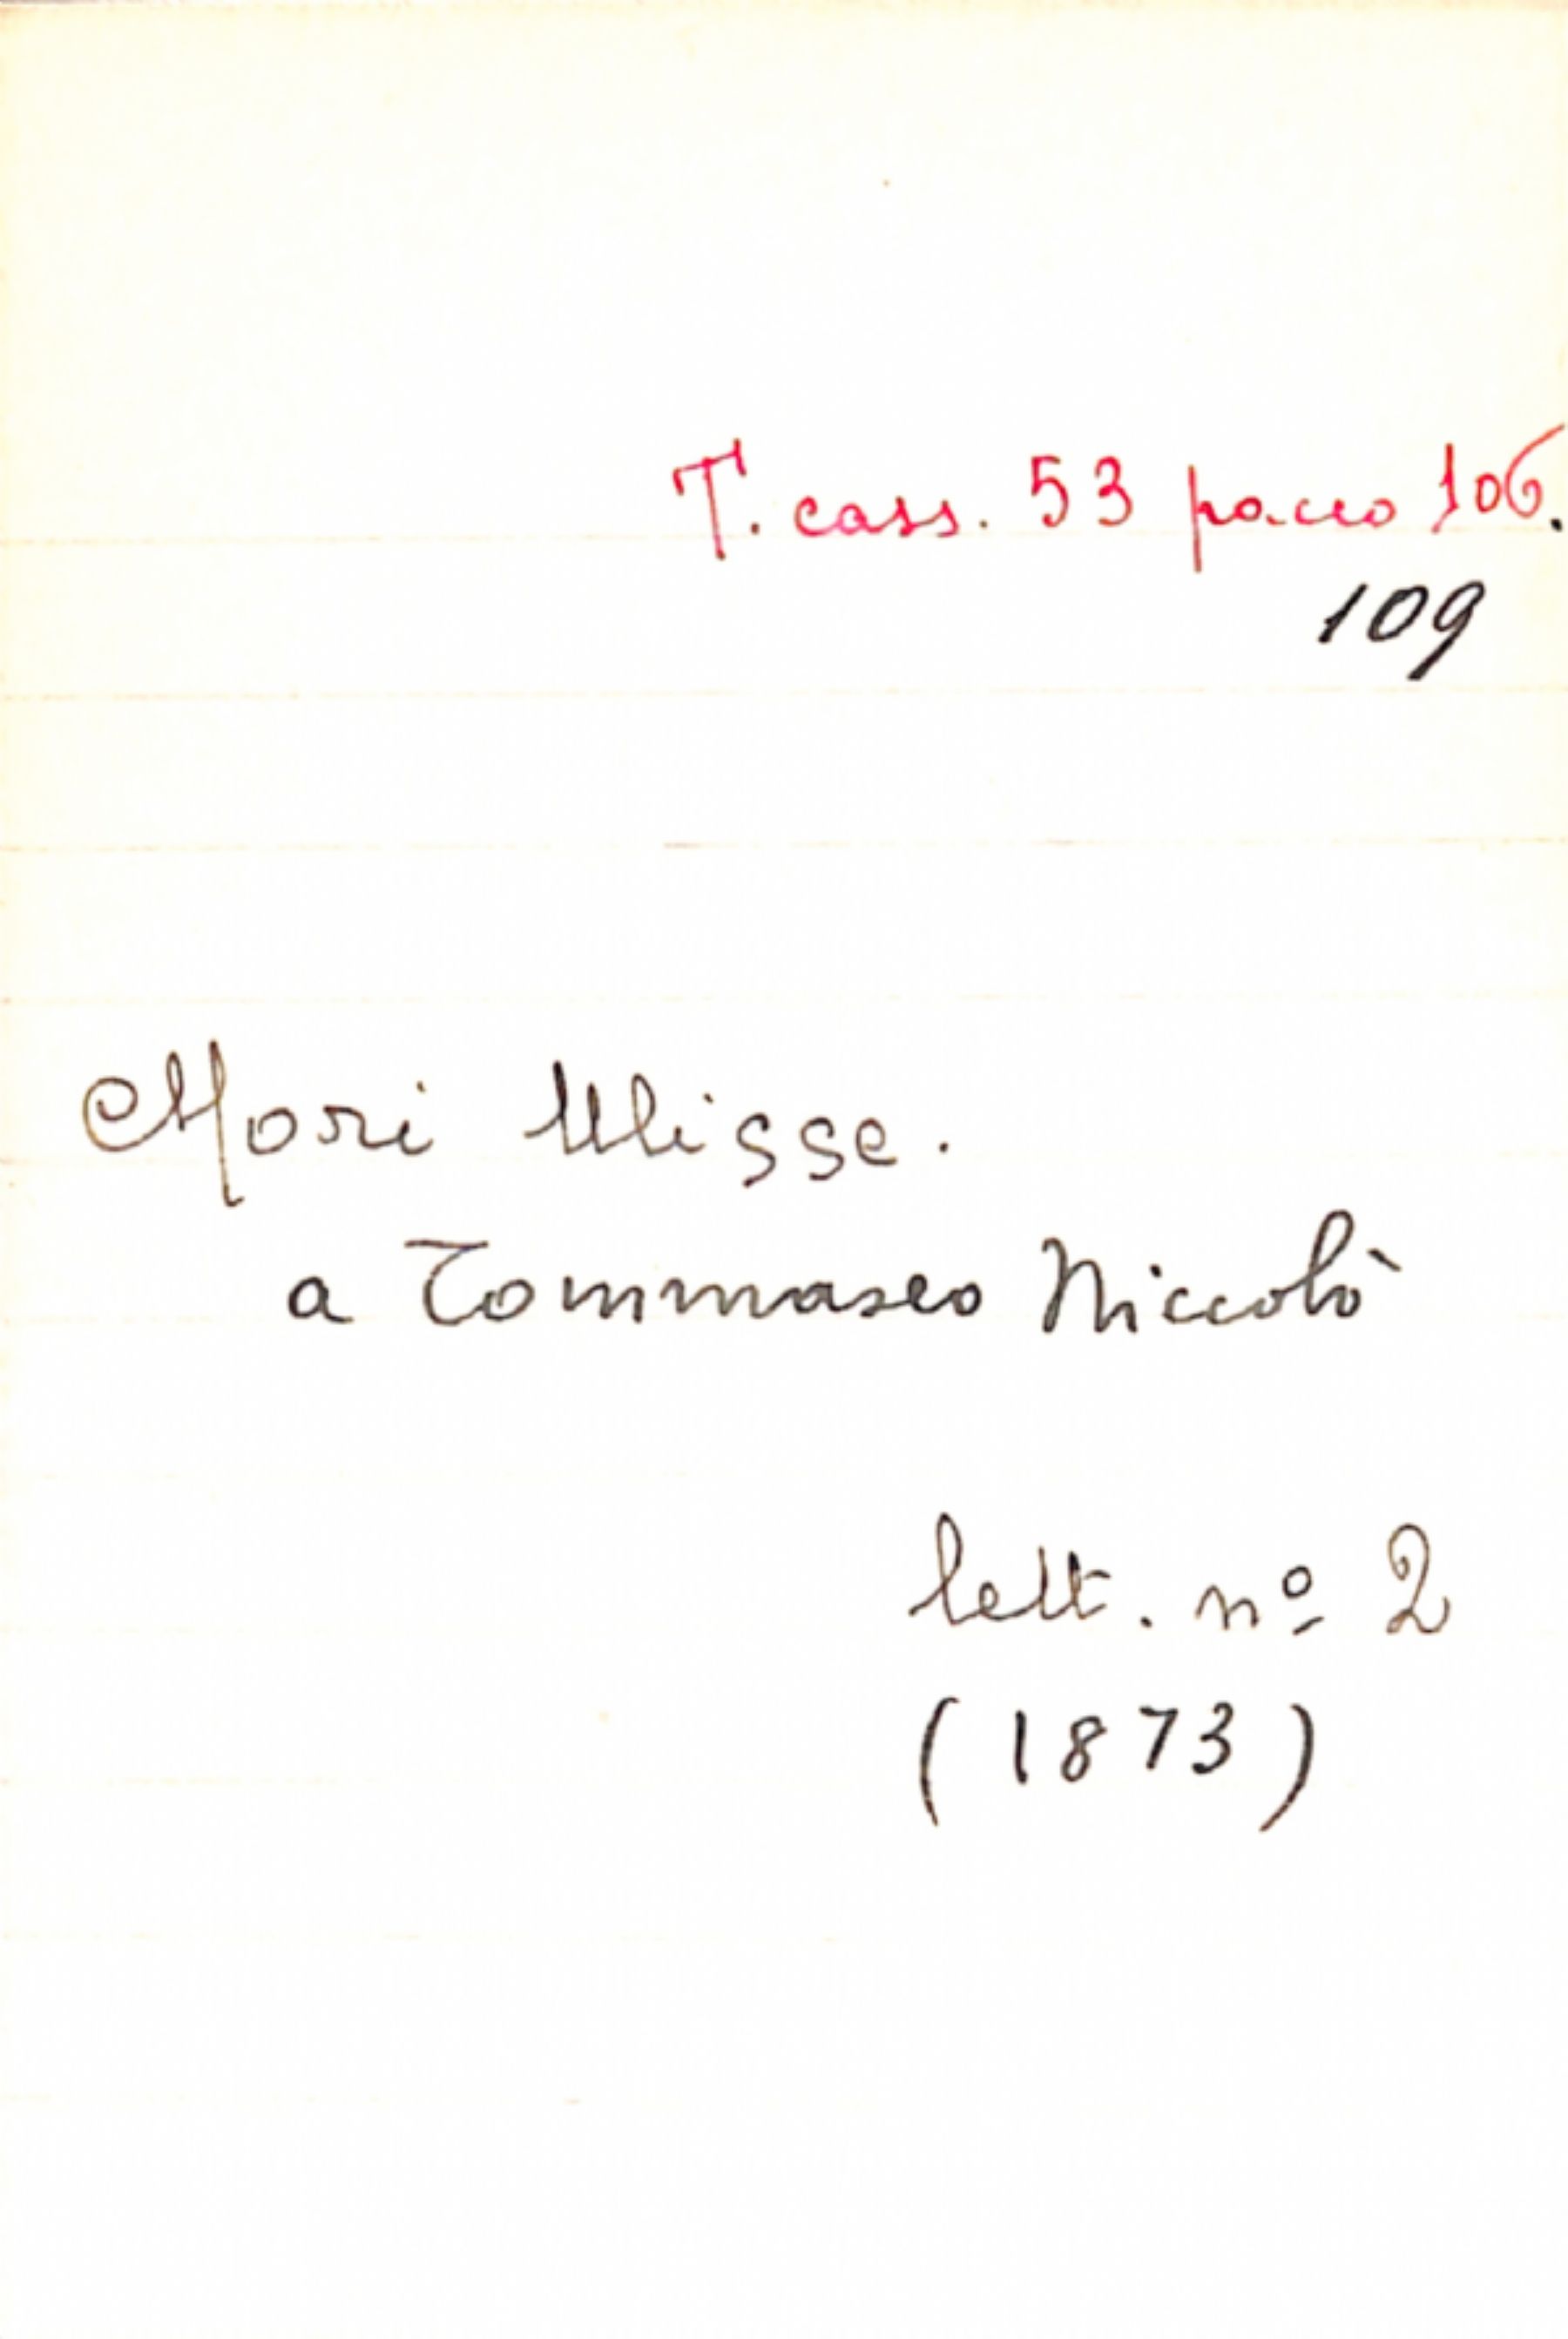 T. cass. 53 pacco 106.
109
Mori Ulisse.
a Tommaseo Niccolò
lett. nº 2
(1873)